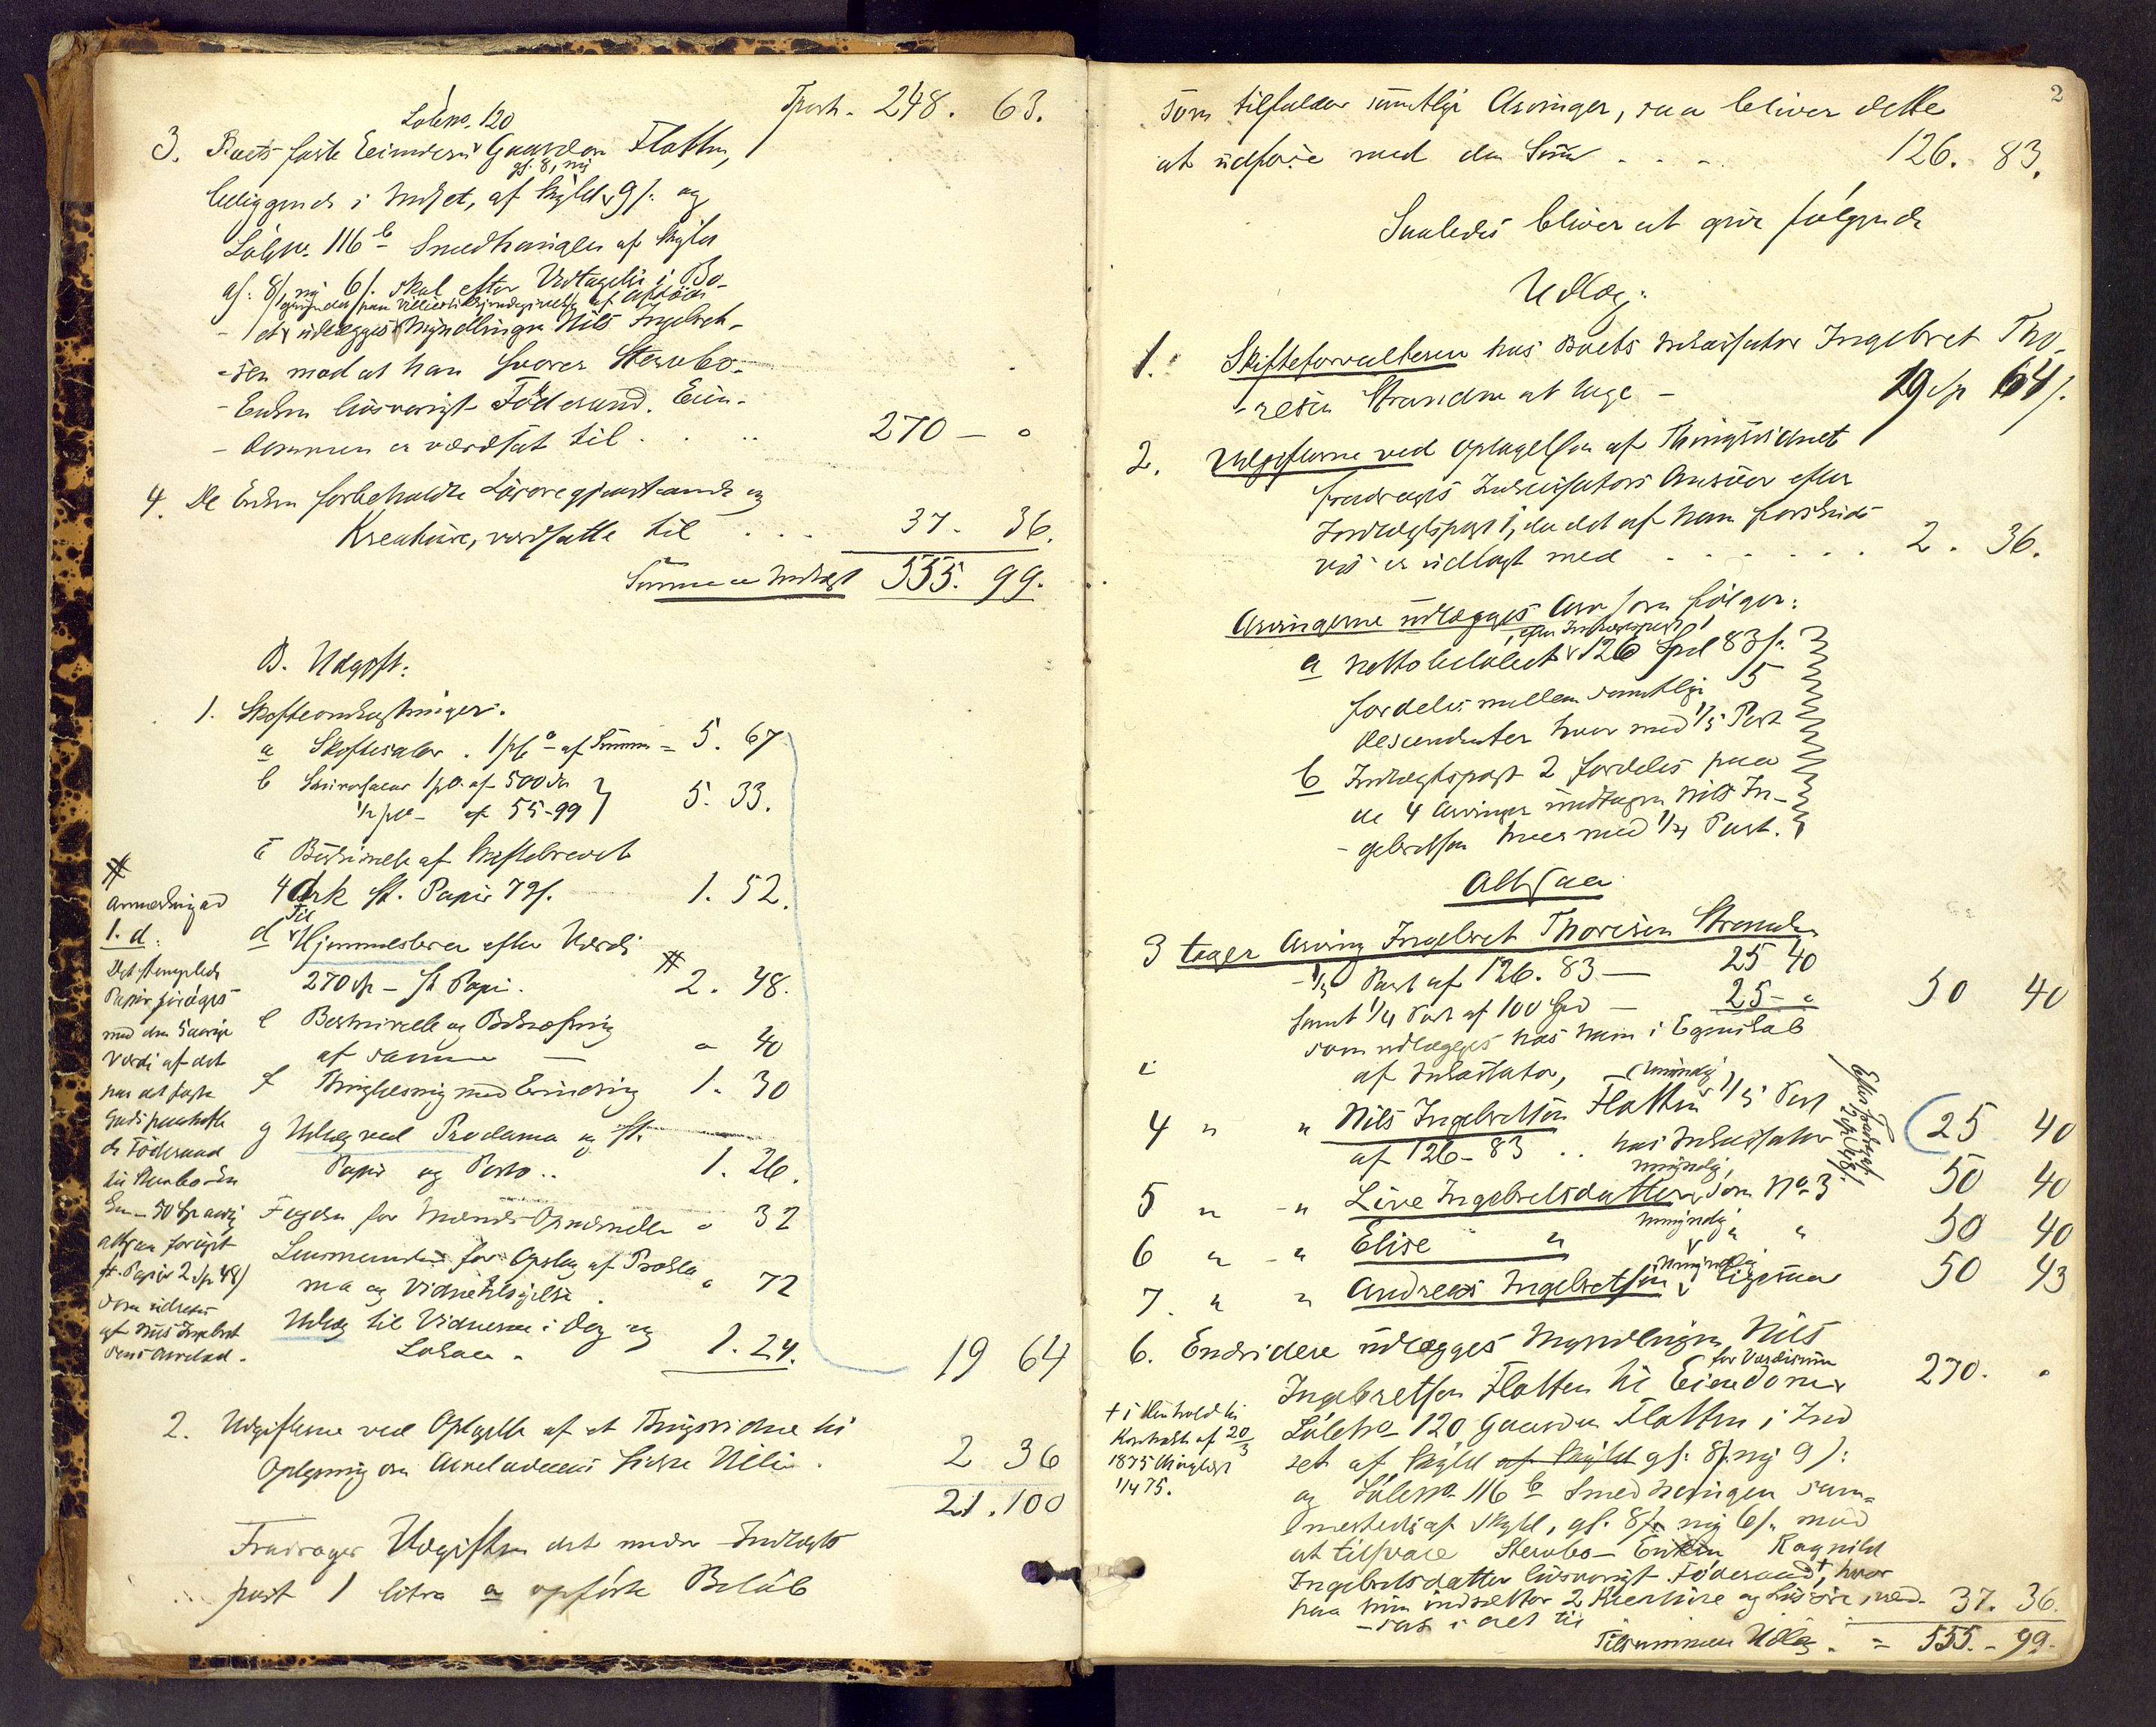 Transp. 248. 63.
Löbno. 120
3. Boets faste Eiendom Gaarden Flatten,
gl. 8, ny
beliggende i Indset, af Skyld 9 s. og
Löbno. 116 b Smedhaugen af Skyld
gl. 8 s, ny 6 s. skal efter Vedtagelse i Bo-
-et udlægges Myndlingen Nils Ingebret-
-sen mod at han svarer Stervbo-
-Enken livsvarigt Föderaad. Eien-
-dommen er værdsat til . . . 270 - "
4. De Enken forbeholdte Lösöregjenstande og
Kreature, værdsatte til . . . 37. 36.
Summa Indtægt 555. 99.
B. Udgift:
1. Skifteomkostninger.
a Skiftesalær. 1 pCt. af Summen = 5. 67
b Skriversalær 1 pC. af 500 Sp
1/2 pCt - af 55-99 } 5. 33.
c Beskrivelse af Skiftebrevet
4 Ark st. Papir 72 s. 1. 52.
Til
d Hjemmelsbrev efter Værdi
270 Sp - st. Papir. # 2. 48.
e Beskrivelse og Bekræftning
af samme — " 40
f Thinglæsning med Erindring 1. 30
g Udlæg ved Proclama og st.
Papir og Porto .. 1. 26.
Fogden for Mænds Opnævnelse " 32
Lensmanden for Opslag af Prokla
ma og Vidnetilsigelse . " 72
Udlæg til Vidnerne i Dag og
Lokale " 1. 24.
19 64
#
Anmærkning ad
1. d:
Det stemplede
Papir foröges
med den 5 aarige
Værdi af det
paa det faste
Gods paaheftede
Föderaad
til Stervbo-En
ken - 50 Sp aarlig
altsaa foröget
st. Papir 2 Sp 48 s
som udredes
af Nils Ingebret
sens Arvelod.
2. Udgifterne ved Optagelse af et Thingsvidne til
Oplysning om Arveladerens sidste Villie . 2 36
21. 100
Fradrages Udgiften det under Indtægts
post 1 litra a opförte Belöb
2
som tilfalder samtlige Arvinger, saa bliver dette
at udföre med den Sum . . . 126. 83.
Saaledes bliver at gjöre fölgende
Udlæg:
1. Skifteforvalteren hos Boets Inkassator Ingebret Tho-
-resen Stranden at tage - 19 Sp 64 s.
2. Udgifterne ved Optagelsen af Thingsvidnet
fradrages Inkassators Ansvar efter
Indtægtspost 1, da det af ham forskuds
vis er udlagt med . . . . . . 2. 36.
Arvingerne udlægges Arv som fölger:
efter Indtægtspost 1
a Nettobelöbet 126 Spd 83 s.
fordeles mellem samtlige 5
Descendenter hver med 1/5 Part
b Indtægtspost 2 fordeles paa
de 4 Arvinger undtagen Nils In-
-gebretsen hver med 1/4 Part.
Altsaa
3 tager Arving Ingebret Thoresen Stranden
- 1/5 Part af 126. 83 — 25 40
samt 1/4 Part af 100 Spd — 25 - " 50 40
som udlægges hos ham i Egenskab
af Inkassator,
umyndig
4 " " Nils Ingebretsen Flatten 1/5 Part
af 126-83 .. hos Inkassator 25 40
Efter Fradrag af
2 Sp 48 s.
umyndig,
5 " - " Live Ingebretsdatter som No 3 50 40
umyndig
6 " - " Elise " " " 50 40
umyndig
7. " " Andreas Ingebretsen ligesaa 50 43
6. Endvidere udlægges Myndlingen Nils
for Værdisum
Ingebretsen Flatten til Eiendom 270. "
Löbeno 120 Gaarden Flatten i Ind
set af Skyld af Skyld gl. 8 s. ny 9 s:
og Löbeno 116 b Smedhaugen sam-
mesteds af Skyld, gl. 8 s ny 6 s. mod
at tilsvare Stervbo-Enken Ragnild
Ingebretsdatter livsvarigt Föderaad †, hvor
paa hun indsætter 2 Kreature og Lösöre, værd-
-sat i alt til 37. 36.
Tilsammen Udlæg. = 555. - 99.
† i Henhold til
Kontrakt af 20/3
1875 thinglyst
1/4 75.